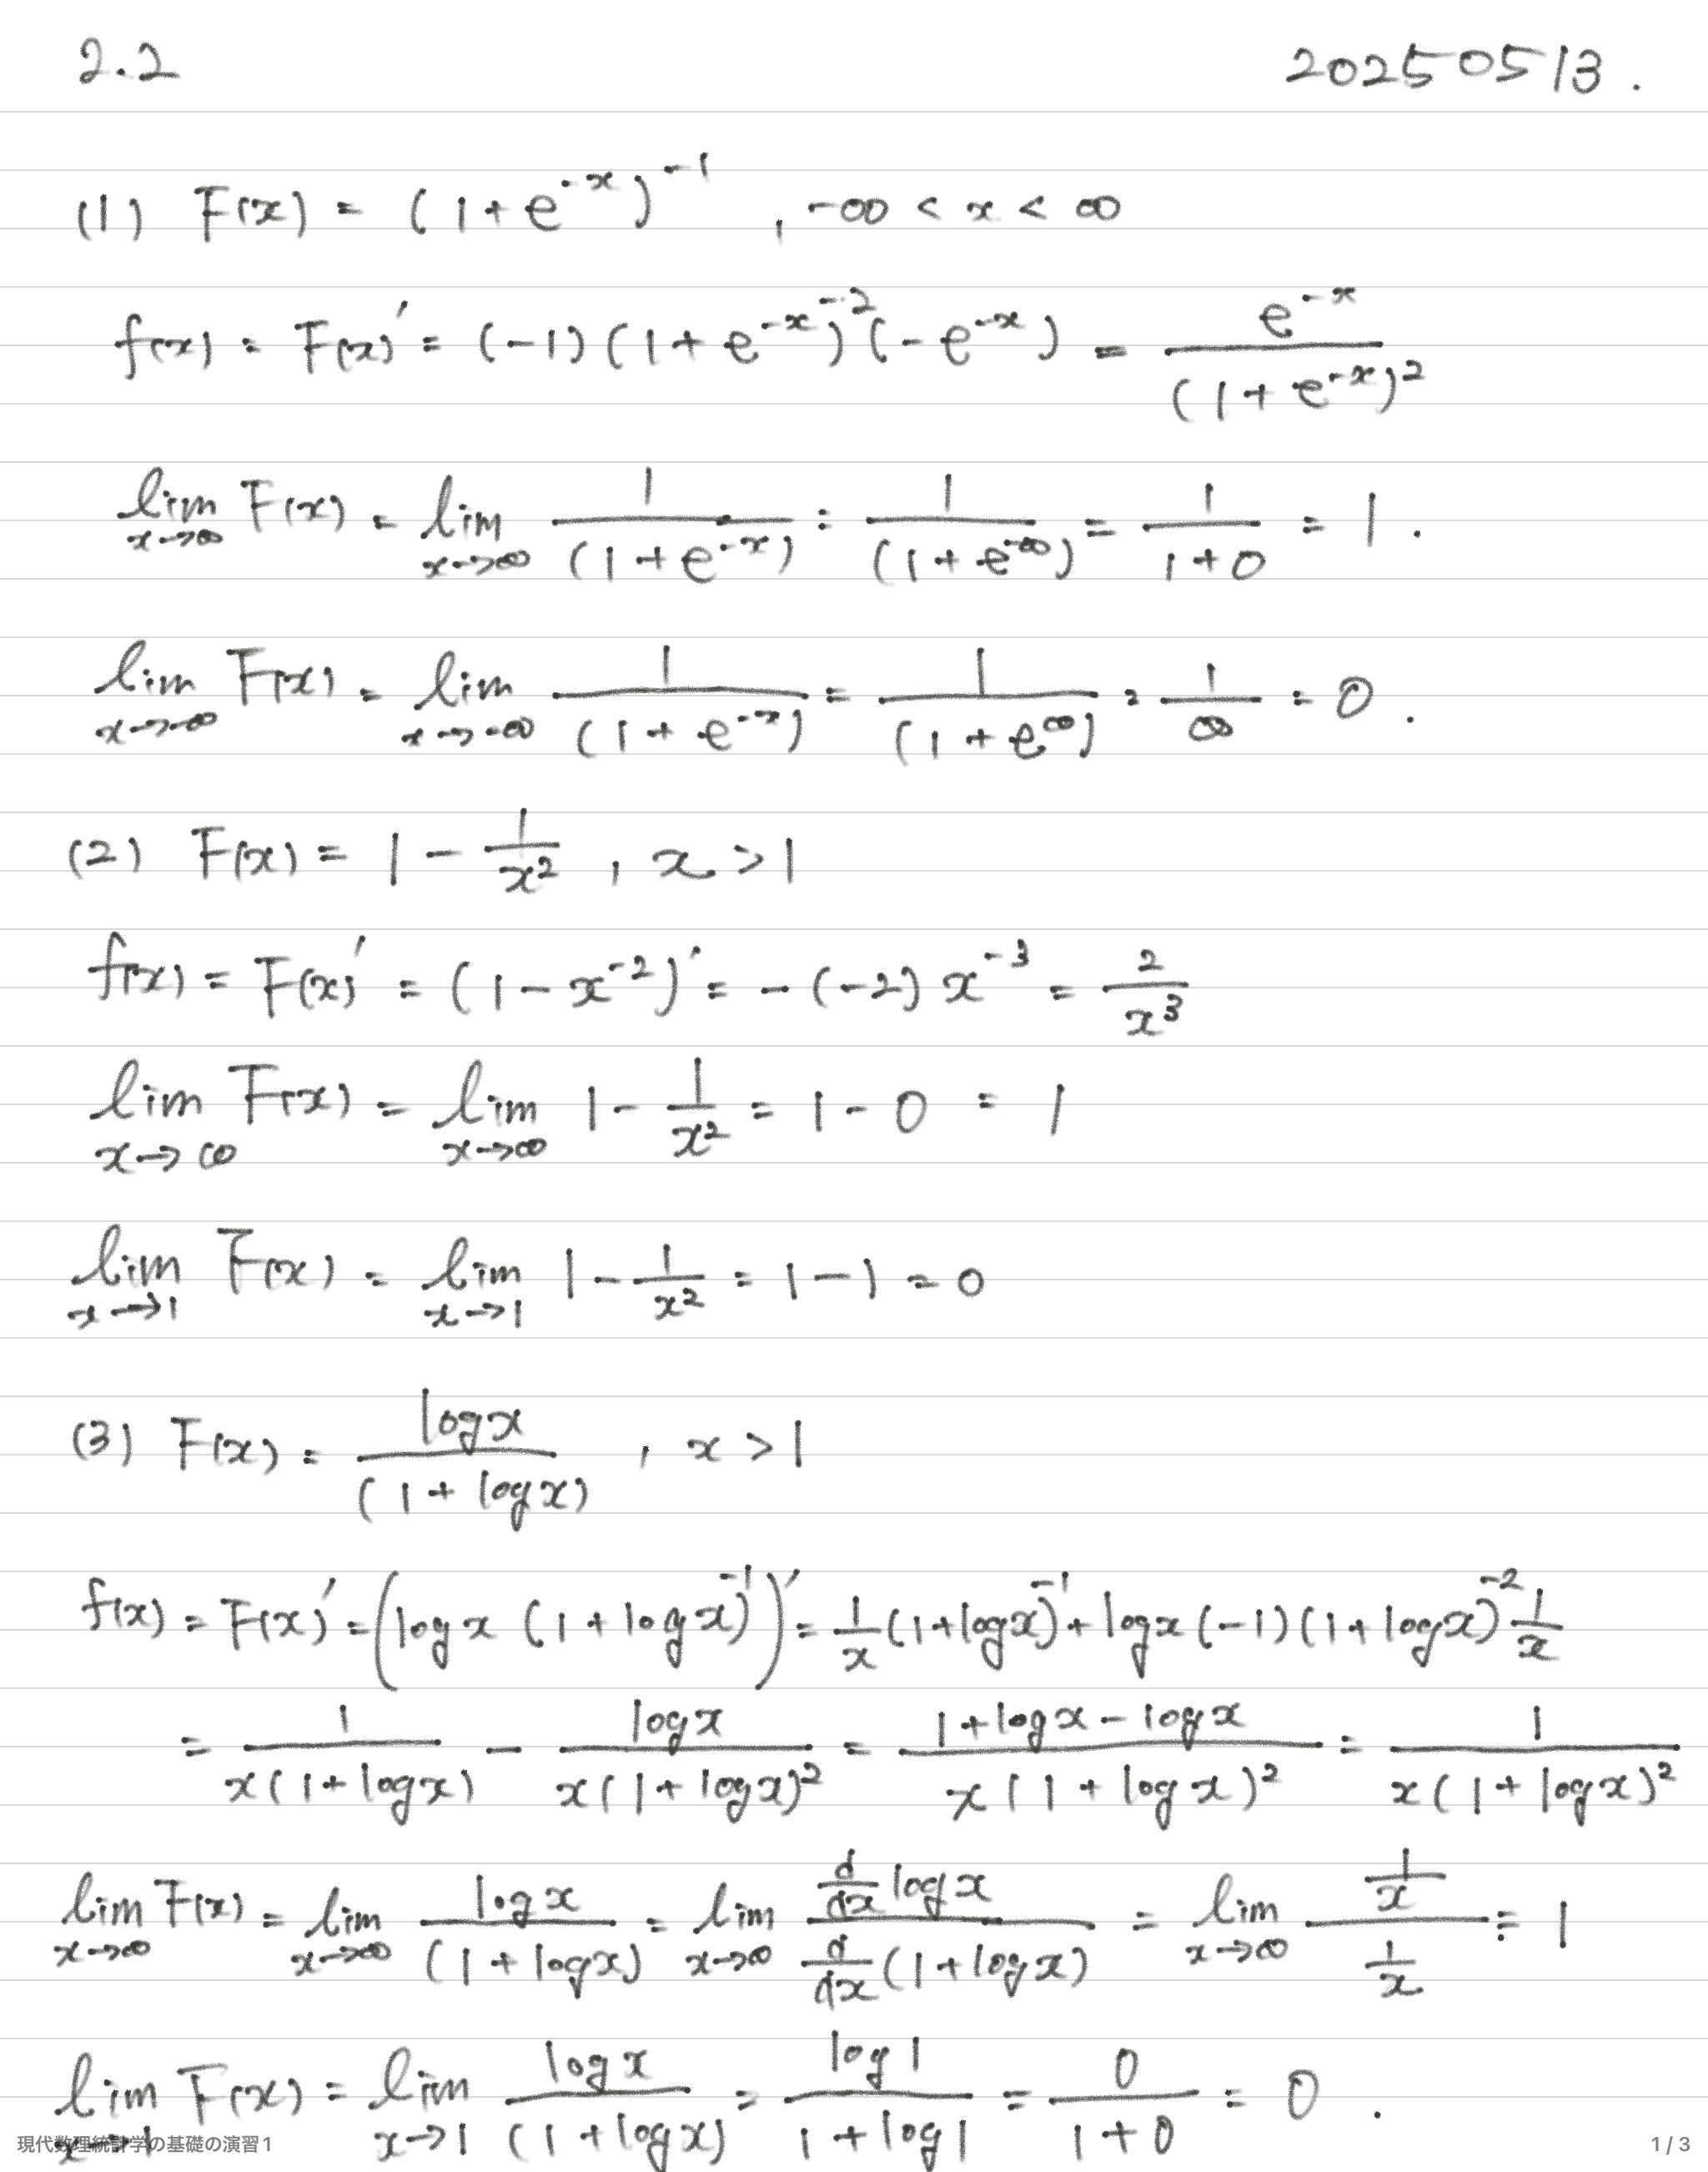 2.2 20250513.
(1) F(x) = (1+e^{-x})^{-1} , -∞ < x < ∞
f(x) = F(x)' = (-1)(1+e^{-x})^{-2}(-e^{-x}) = \frac{e^{-x}}{(1+e^{-x})^2}
\lim_{x→∞} F(x) = \lim_{x→∞} \frac{1}{(1+e^{-x})} = \frac{1}{(1+e^{-∞})} = \frac{1}{1+0} = 1.
\lim_{x→-∞} F(x) = \lim_{x→-∞} \frac{1}{(1+e^{-x})} = \frac{1}{(1+e^{∞})} = \frac{1}{∞} = 0.
(2) F(x) = 1 - \frac{1}{x^2} , x > 1
f(x) = F(x)' = (1-x^{-2})' = -(-2)x^{-3} = \frac{2}{x^3}
\lim_{x→∞} F(x) = \lim_{x→∞} 1 - \frac{1}{x^2} = 1 - 0 = 1
\lim_{x→1} F(x) = \lim_{x→1} 1 - \frac{1}{x^2} = 1 - 1 = 0
(3) F(x) = \frac{log x}{(1+log x)} , x > 1
f(x) = F(x)' = (log x (1+log x)^{-1})' = \frac{1}{x}(1+log x)^{-1} + log x (-1)(1+log x)^{-2} \frac{1}{x}
= \frac{1}{x(1+log x)} - \frac{log x}{x(1+log x)^2} = \frac{1+log x - log x}{x(1+log x)^2} = \frac{1}{x(1+log x)^2}
\lim_{x→∞} F(x) = \lim_{x→∞} \frac{log x}{(1+log x)} = \lim_{x→∞} \frac{\frac{d}{dx} log x}{\frac{d}{dx}(1+log x)} = \lim_{x→∞} \frac{\frac{1}{x}}{\frac{1}{x}} = 1
\lim_{x→1} F(x) = \lim_{x→1} \frac{log x}{(1+log x)} = \frac{log 1}{1+log 1} = \frac{0}{1+0} = 0.
現代数理統計学の基礎の演習1 1 / 3